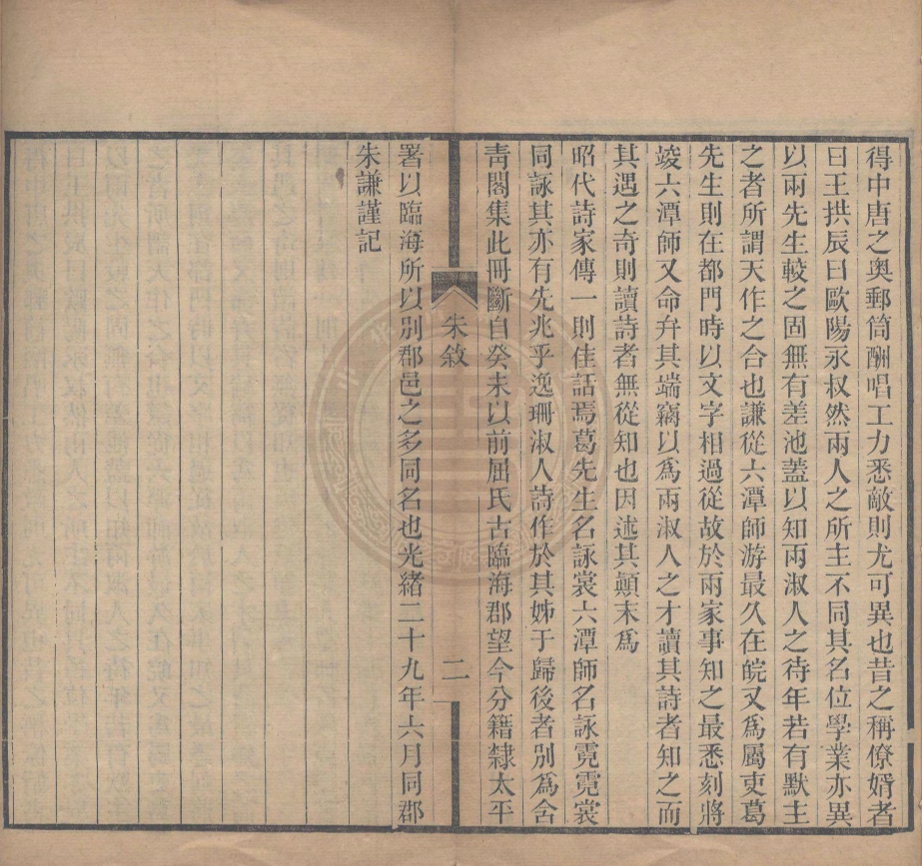 得中唐之奧郵筒酬唱工力悉敵則尤可異也昔之稱僚婿者
曰王拱辰曰歐陽永叔然兩人之所主不同其名位學業亦異
以兩先生較之固無有差池蓋以知兩淑人之待年若有默主
之者所謂天作之合也謙從六潭師游最久在皖又爲屬吏葛
先生則在都門時以文字相過從故於兩家事知之最悉刻將
竣六潭師又命弁其端竊以爲兩淑人之才讀其詩者知之而
其遇之奇則讀詩者無從知也因述其顛末爲
昭代詩家傳一則佳話焉葛先生名詠裳六潭師名詠霓霓裳
同詠其亦有先兆乎逸珊淑人詩作於其姊于歸後者別爲舍
靑閣集此冊斷自癸未以前屈氏古臨海郡望今分籍隸太平
朱敘
二
署以臨海所以別郡邑之多同名也光緒二十九年六月同郡
朱謙謹記